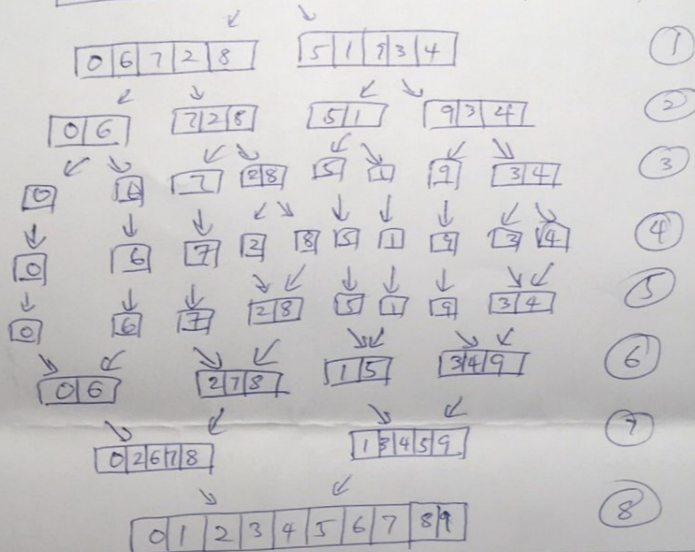 0 6 7 2 8 5 1 9 3 4 1
0 6 7 2 8 5 1 9 3 4 2
0 6 7 2 8 5 1 9 3 4 3
0 6 7 2 8 5 1 9 3 4 4
0 6 7 2 8 5 1 9 3 4 5
0 6 2 7 8 1 5 3 4 9 6
0 2 6 7 8 1 3 4 5 9 7
0 1 2 3 4 5 6 7 8 9 8